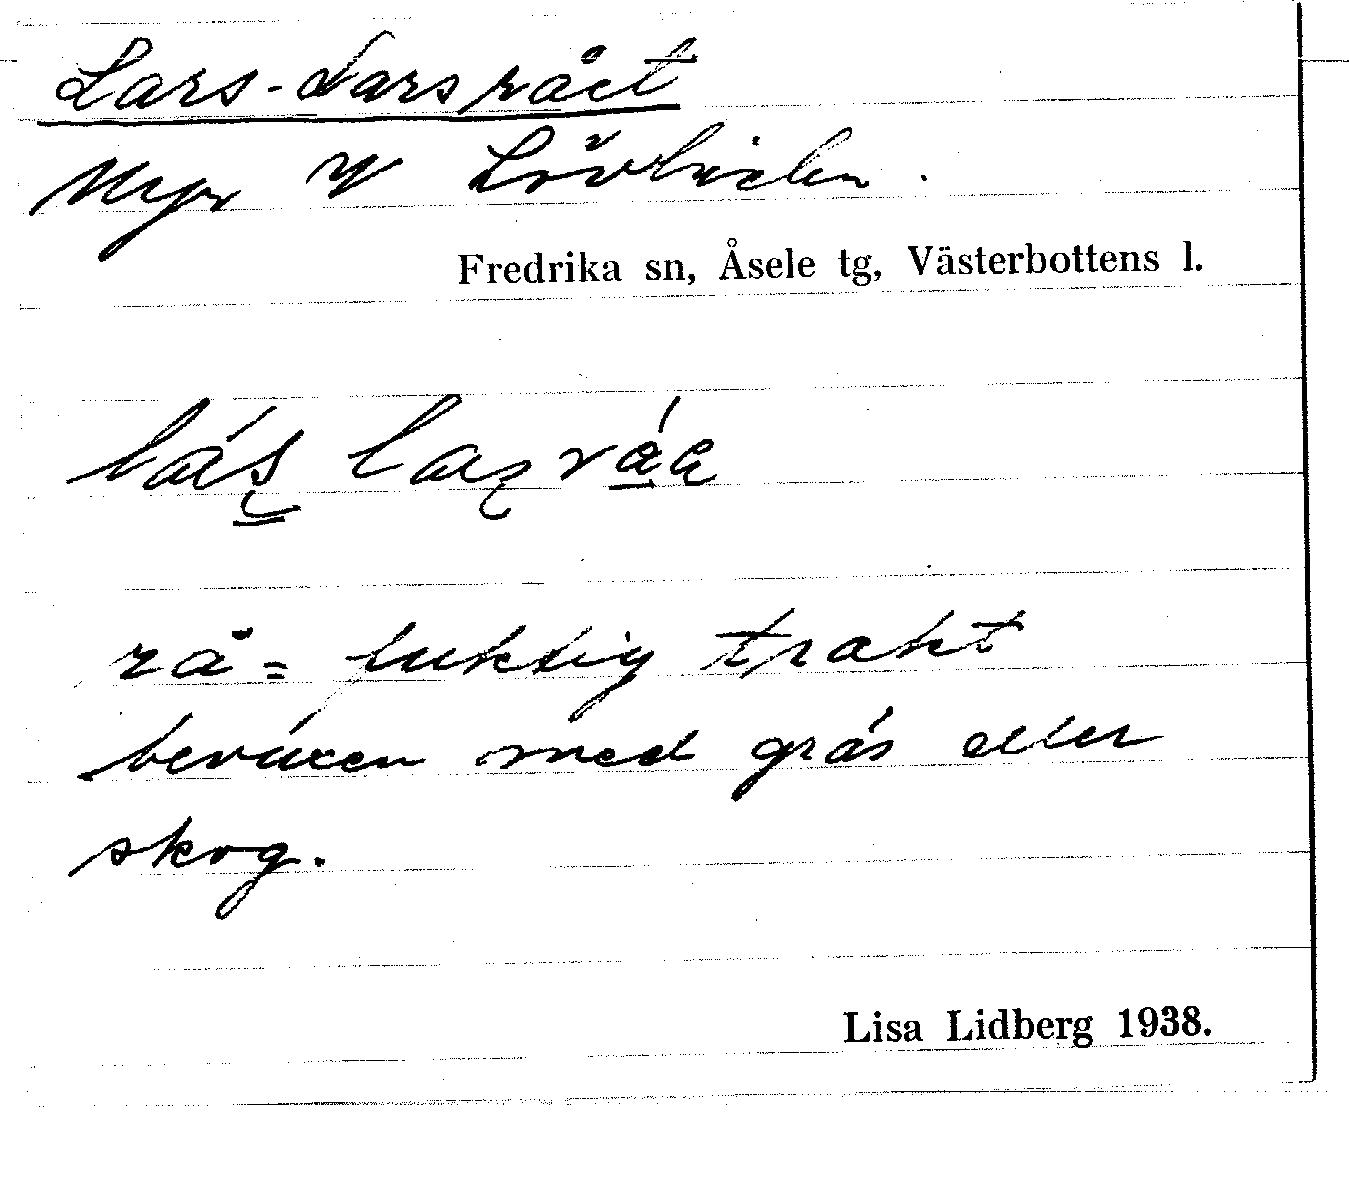 Lars-Larsrået
Myr V Lövliden.
Fredrika sn, Åsele tg, Västerbottens l.
rå = fuktig trakt
beväxen med gräs eller
skog.
Lisa Lidberg 1938.